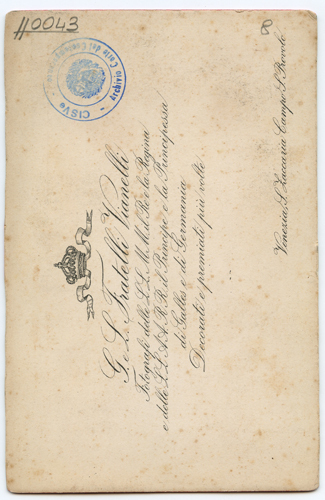 H0043
8
CISVe - Archivio Carte del
G. e L. Fratelli Vianelli
Fotografi delle L.L. M.M. il Re e la Regina
e delle L.L. A.A. R.R. il Principe e la Principessa
di Galles e di Germania
Decorati e premiati più volte
Venezia, S. Zaccaria Campo S. Provolo